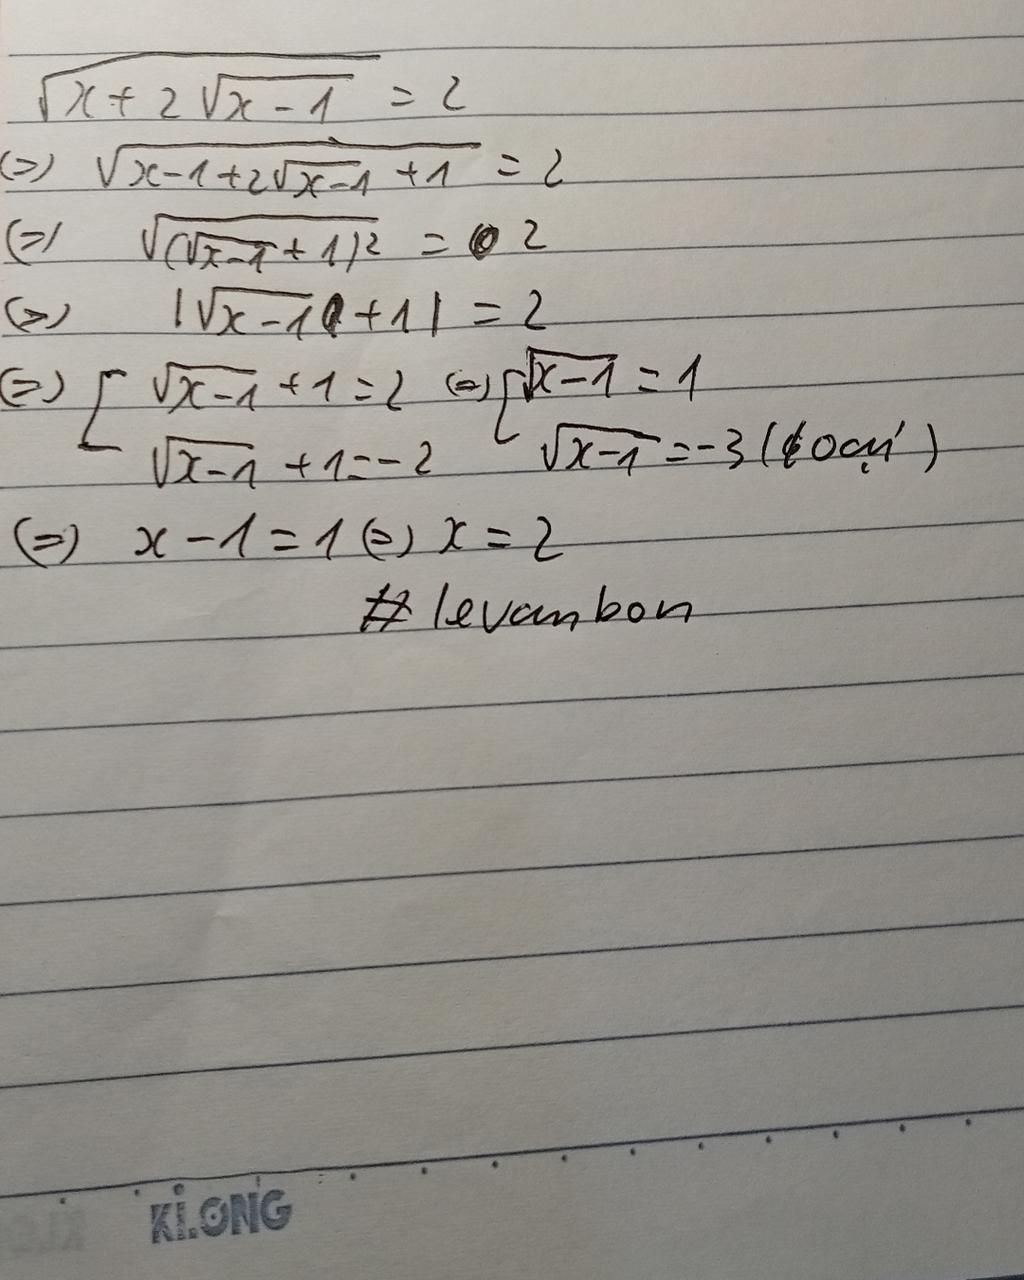 √(x + 2√(x - 1)) = 2
(=) √(x-1+2√(x-1) +1) = 2
(=) √((√(x-1) + 1)²) = 2
(=) |√(x-1) + 1| = 2
(=) [ √(x-1) + 1 = 2 (=) [ √(x-1) = 1
√(x-1) + 1 = -2 √(x-1) = -3 (loại)
(=) x - 1 = 1 (=) x = 2
# levanbon
Ki.ONG